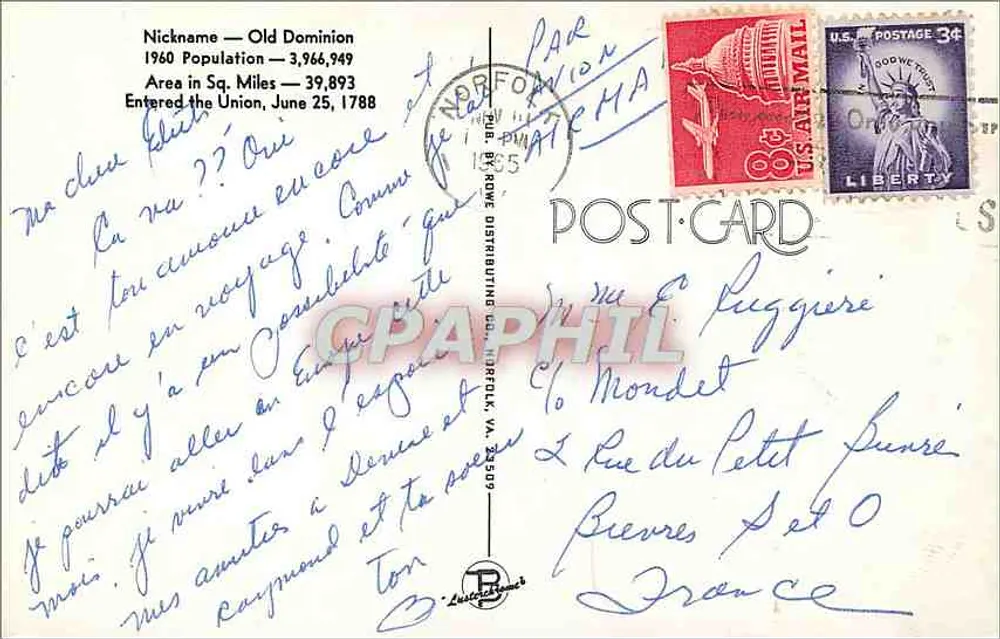 Nickname — Old Dominion
1960 Population — 3,966,949
Area in Sq. Miles — 39,893
Entered the Union, June 25, 1788
Ma chere
Ca va?? Oui et
c'est ton amour encore
encore en voyage. Comme je t'ai
dit il y'a un possibilité que
je pourrai aller en Europe cette
mois. Je vivre dans l'espoir.
mes amities a Denise et
raymond et ta soeur
ton
B
PAR
AVION
AIR MA
NORFOLK
NOV
PM
1965
U.S. AIR MAIL
8¢
U.S. POSTAGE 3¢
IN GOD WE TRUST
LIBERTY
POST·CARD
PUB. BY ROWE DISTRIBUTING CO., NORFOLK, VA. 23509
CPAPHIL
M. E. Ruggieri
c/o Mondet
2 Rue du Petit Bievre
Bievres S et O
France
"Lusterchrome"